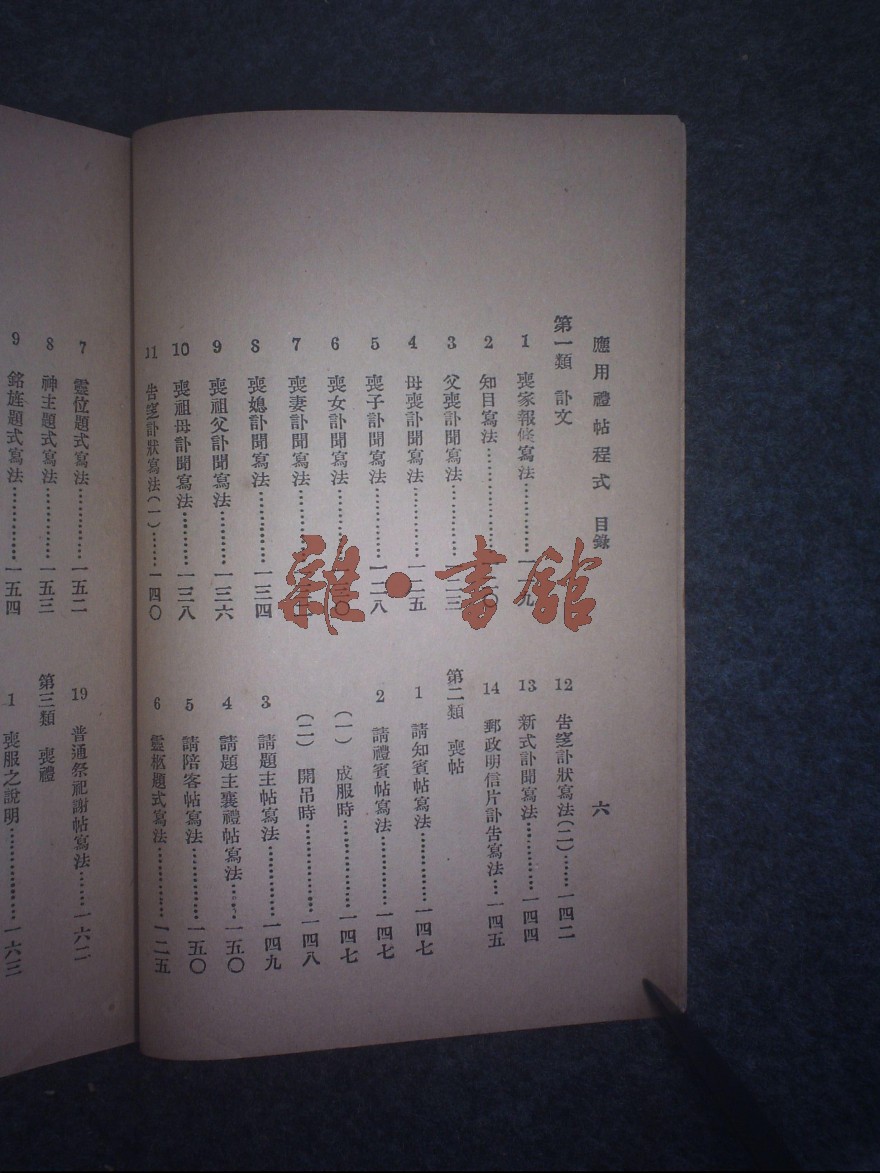 應用禮帖程式 目錄 六
第一類 訃文
1 喪家報條寫法………一一九
2 知目寫法…………一二〇
3 父喪訃聞寫法………一二三
4 母喪訃聞寫法………一二五
5 喪子訃聞寫法………一二八
6 喪女訃聞寫法………一三〇
7 喪妻訃聞寫法………
8 喪媳訃聞寫法………一三四
9 喪祖父訃聞寫法………一三六
10 喪祖母訃聞寫法………一三八
11 告窆訃狀寫法(一)……一四〇
12 告窆訃狀寫法(二)……一四二
13 新式訃聞寫法………一四四
14 郵政明信片訃告寫法…一四五
第二類 喪帖
1 請知賓帖寫法………一四七
2 請禮賓帖寫法………一四七
(一) 成服時…………一四七
(二) 開吊時…………一四八
3 請題主帖寫法………一四九
4 請題主襄禮帖寫法……一五〇
5 請陪客帖寫法………一五〇
6 靈柩題式寫法………一二五
7 靈位題式寫法………一五二
8 神主題式寫法………一五三
9 銘旌題式寫法………一五四
19 普通祭祀謝帖寫法……一六二
第三類 喪禮
1 喪服之說明…………一六三
雜·書館